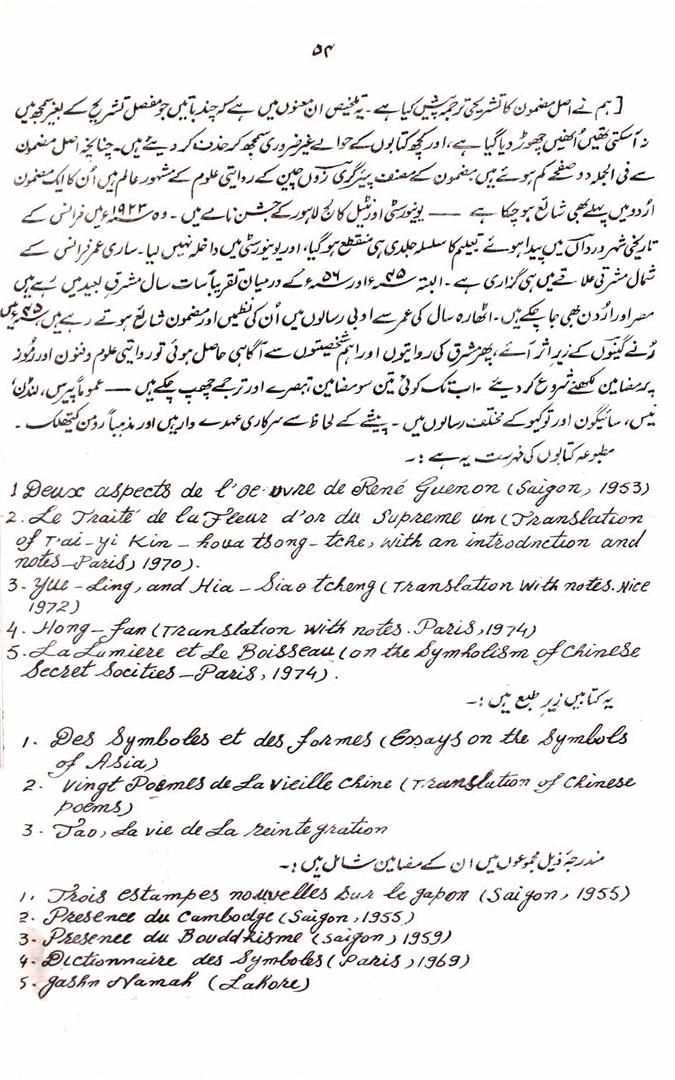 ۵۴
[ ہم نے اصل مضمون کا تشریحی ترجمہ پیش کیا ہے ۔ یہ تلخیص ان معنوں میں ہے کہ چند باتیں جو مفصل تشریح کے بغیر سمجھ میں
نہ آسکتی تھیں اُنھیں چھوڑ دیا گیا ہے ، اور کچھ کتابوں کے حوالے غیر ضروری سمجھ کر حذف کر دیئے ہیں ۔ چنانچہ اصل مضمون
سے فی الجملہ دو صفحے کم ہوئے ہیں مضمون کے مصنف پیئر گری زوں چین کے روایتی علوم کے مشہور عالم ہیں اُن کا ایک مضمون
اردو میں پہلے بھی شائع ہو چکا ہے —— یونیورسٹی اورنٹیل کالج لاہور کے جشن نامے میں ۔ وہ ۱۹۲۳ء میں فرانس کے
تاریخی شہر وردآں میں پیدا ہوئے تعلیم کا سلسلہ جلدی ہی منقطع ہو گیا ، اور یونیورسٹی میں داخلہ نہیں لیا ۔ ساری عمر فرانس کے
شمال مشرقی علاقے میں ہی گزاری ہے ۔ البتہ ۴۵ء اور ۵۶ء کے درمیان تقریباً سات سال مشرق بعید میں رہے ہیں
مصر اور اردن بھی جا چکے ہیں ۔ اٹھارہ سال کی عمر سے ادبی رسالوں میں اُن کی نظمیں اور مضمون شائع ہوتے رہے ہیں ۴۵ء میں
رُنے گینوں کے زیر اثر آئے ، پھر مشرق کی روایتوں اور اہم شخصیتوں سے آگاہی حاصل ہوئی تو روایتی علوم و فنون اور رموز
پر مضامین لکھنے شروع کر دیئے ۔ اب تک کوئی تین سو مضامین ، تبصرے اور ترجمے چھپ چکے ہیں —— عموماً پیرس ، لنڈن ،
نیس ، سائیگون اور ٹوکیو کے مختلف رسالوں میں ۔ پیشے کے لحاظ سے سرکاری عہدے دار ہیں اور مذہباً رومن کیتھلک ۔
مطبوعہ کتابوں کی فہرست یہ ہے :۔
1 Deux aspects de l'Oe uvre de René Guenon (Saigon, 1953)
2. Le Traité de la Fleur d'or du Supreme un (Translation
of T'ai-yi Kin-houa tsong-tche, with an introdnction and
notes-Paris, 1970).
3. Yue-Ling, and Hia-Siao tcheng (Translation with notes. Nice
1972)
4. Hong-fan (Translation with notes. Paris, 1974)
5. La Lumiere et Le Boisseau (on the Symbolism of Chinese
Secret Socities-Paris, 1974).
یہ کتابیں زیر طبع ہیں :۔
1. Des Symboles et des formes (Essays on the Symbols
of Asia)
2. Vingt Poemes de La vieille Chine (Translation of Chinese
poems)
3. Tao, La vie de La reintegration
مندرجہ ذیل مجموعوں میں ان کے مضامین شامل ہیں :۔
1. Trois estampes nouvelles Sur le Japon (Saigon, 1955)
2. Presence du Cambodge (Saigon, 1955)
3. Presence du Bouddhisme (Saigon, 1959)
4. Dictionnaire des Symboles (Paris, 1969)
5. Jashn Namah (Lahore)